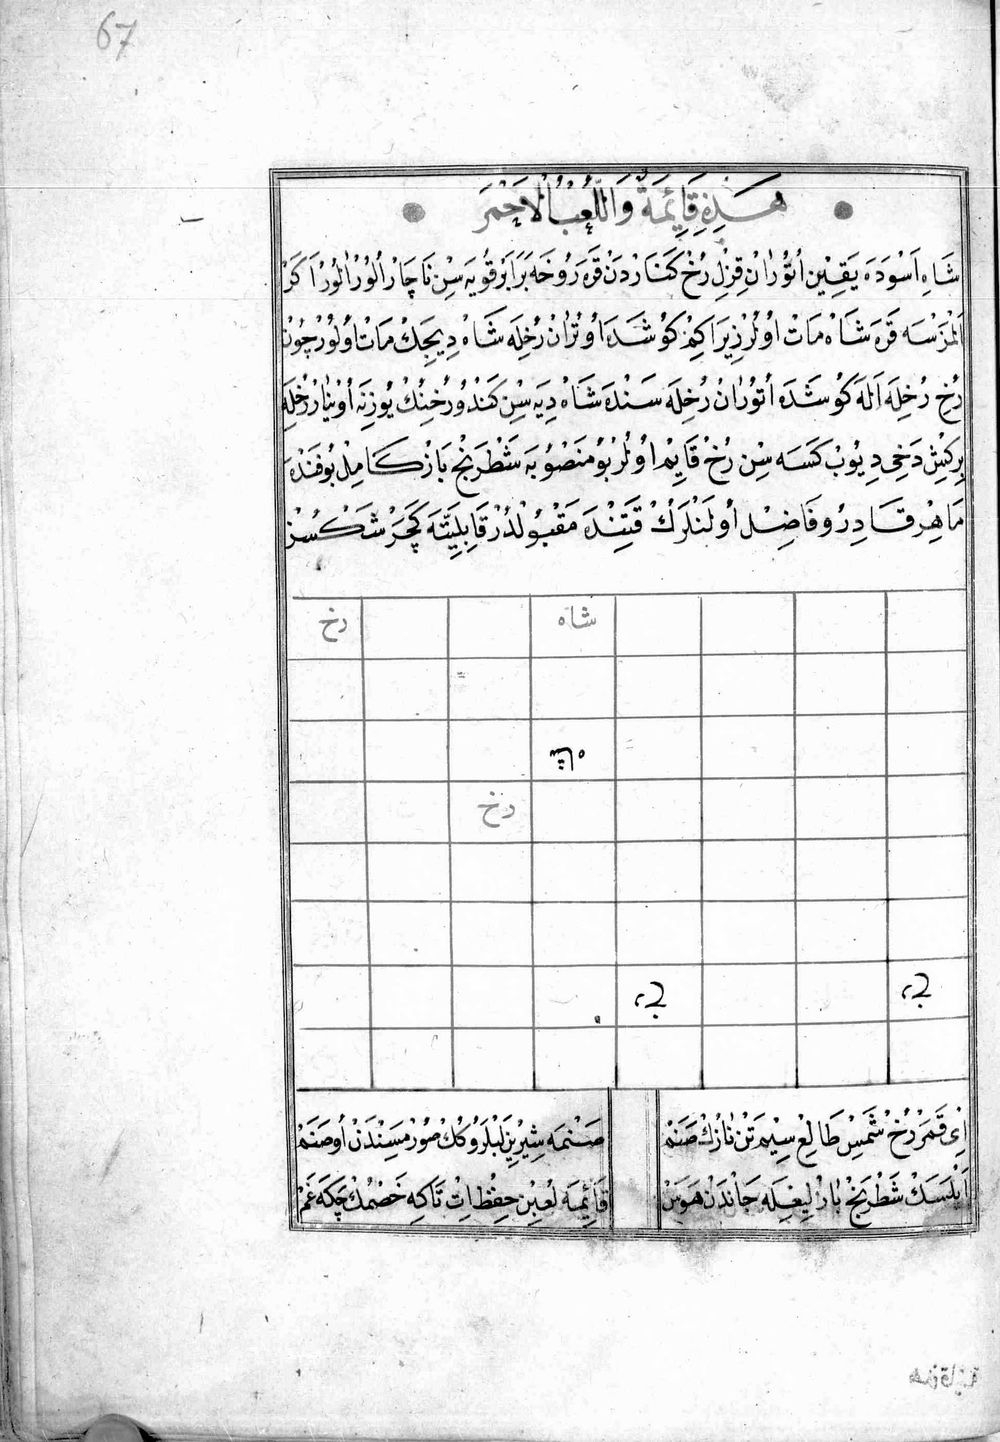 67
هَذِهِ قَائِمَةٌ وَاللَّعْبُ الْاَحْمَر
شَاهِ اَسْوَدَه يَقِين اُتُوْرَانْ قِزِلْ رُخْ كَنَارْدَنْ قَرَه رُوخَه بَرَابَرْ قُويَه سِنْ نَاچَارْ اَلُورْ اَلُورْ اَكَرْ
اَلْمَزْسَه قَرَه شَاهْ مَاتْ اُولُرْ زِيرَا كِمْ كُوشَدَه اُوتُرَانْ رُخِلَه شَاهْ دِيجَكْ مَاتْ اُولُورْ چُونْ
رُخِ رُخِلَه اَلَه كُوشَدَه اُتُورَانْ رُخِلَه سَنْدَه شَاهْ دِيَه سِنْ كَنْدُو رُخِنُكْ يُوزِنَه اُوْينَارْ رُخِلَه
بِركِشْ دَخِى دِيُوبْ كَسَه سِنْ رُخْ قَايِمْ اُولُرْ بُو مَنْصُوبَه شَطْرَنْجْ بَازْ كَامِلْ بُو فَنْدَه
مَاهِرْ قَادِرُ و فَاضِلْ اُولَنْلَرُكْ قَتِنْدَه مَقْبُولْدُرْ قَابِلِيَّتَه كَچَرْ شَكْسُزْ
رخ شاه
شاه
رخ
رخ رخ
اَىْ قَمَرْ رُخْ شَمْسِ طَالِعْ سِيمْ تَنْ نَازُكْ صَنَمْ صَنْمَه شِيرِينْ لَبْلَرُوكُكْ صُورْمَسِنْدَنْ اُوصَنَمْ
اَيْلَسَكْ شَطْرَنْجْ بَازْلِيغِلَه جَانْدَنْ هَوَسْ قَائِمَه لَعْبِنْ حِفْظْ اِتْ تَاكِه خَصْمُكْ چَكَه غَمْ